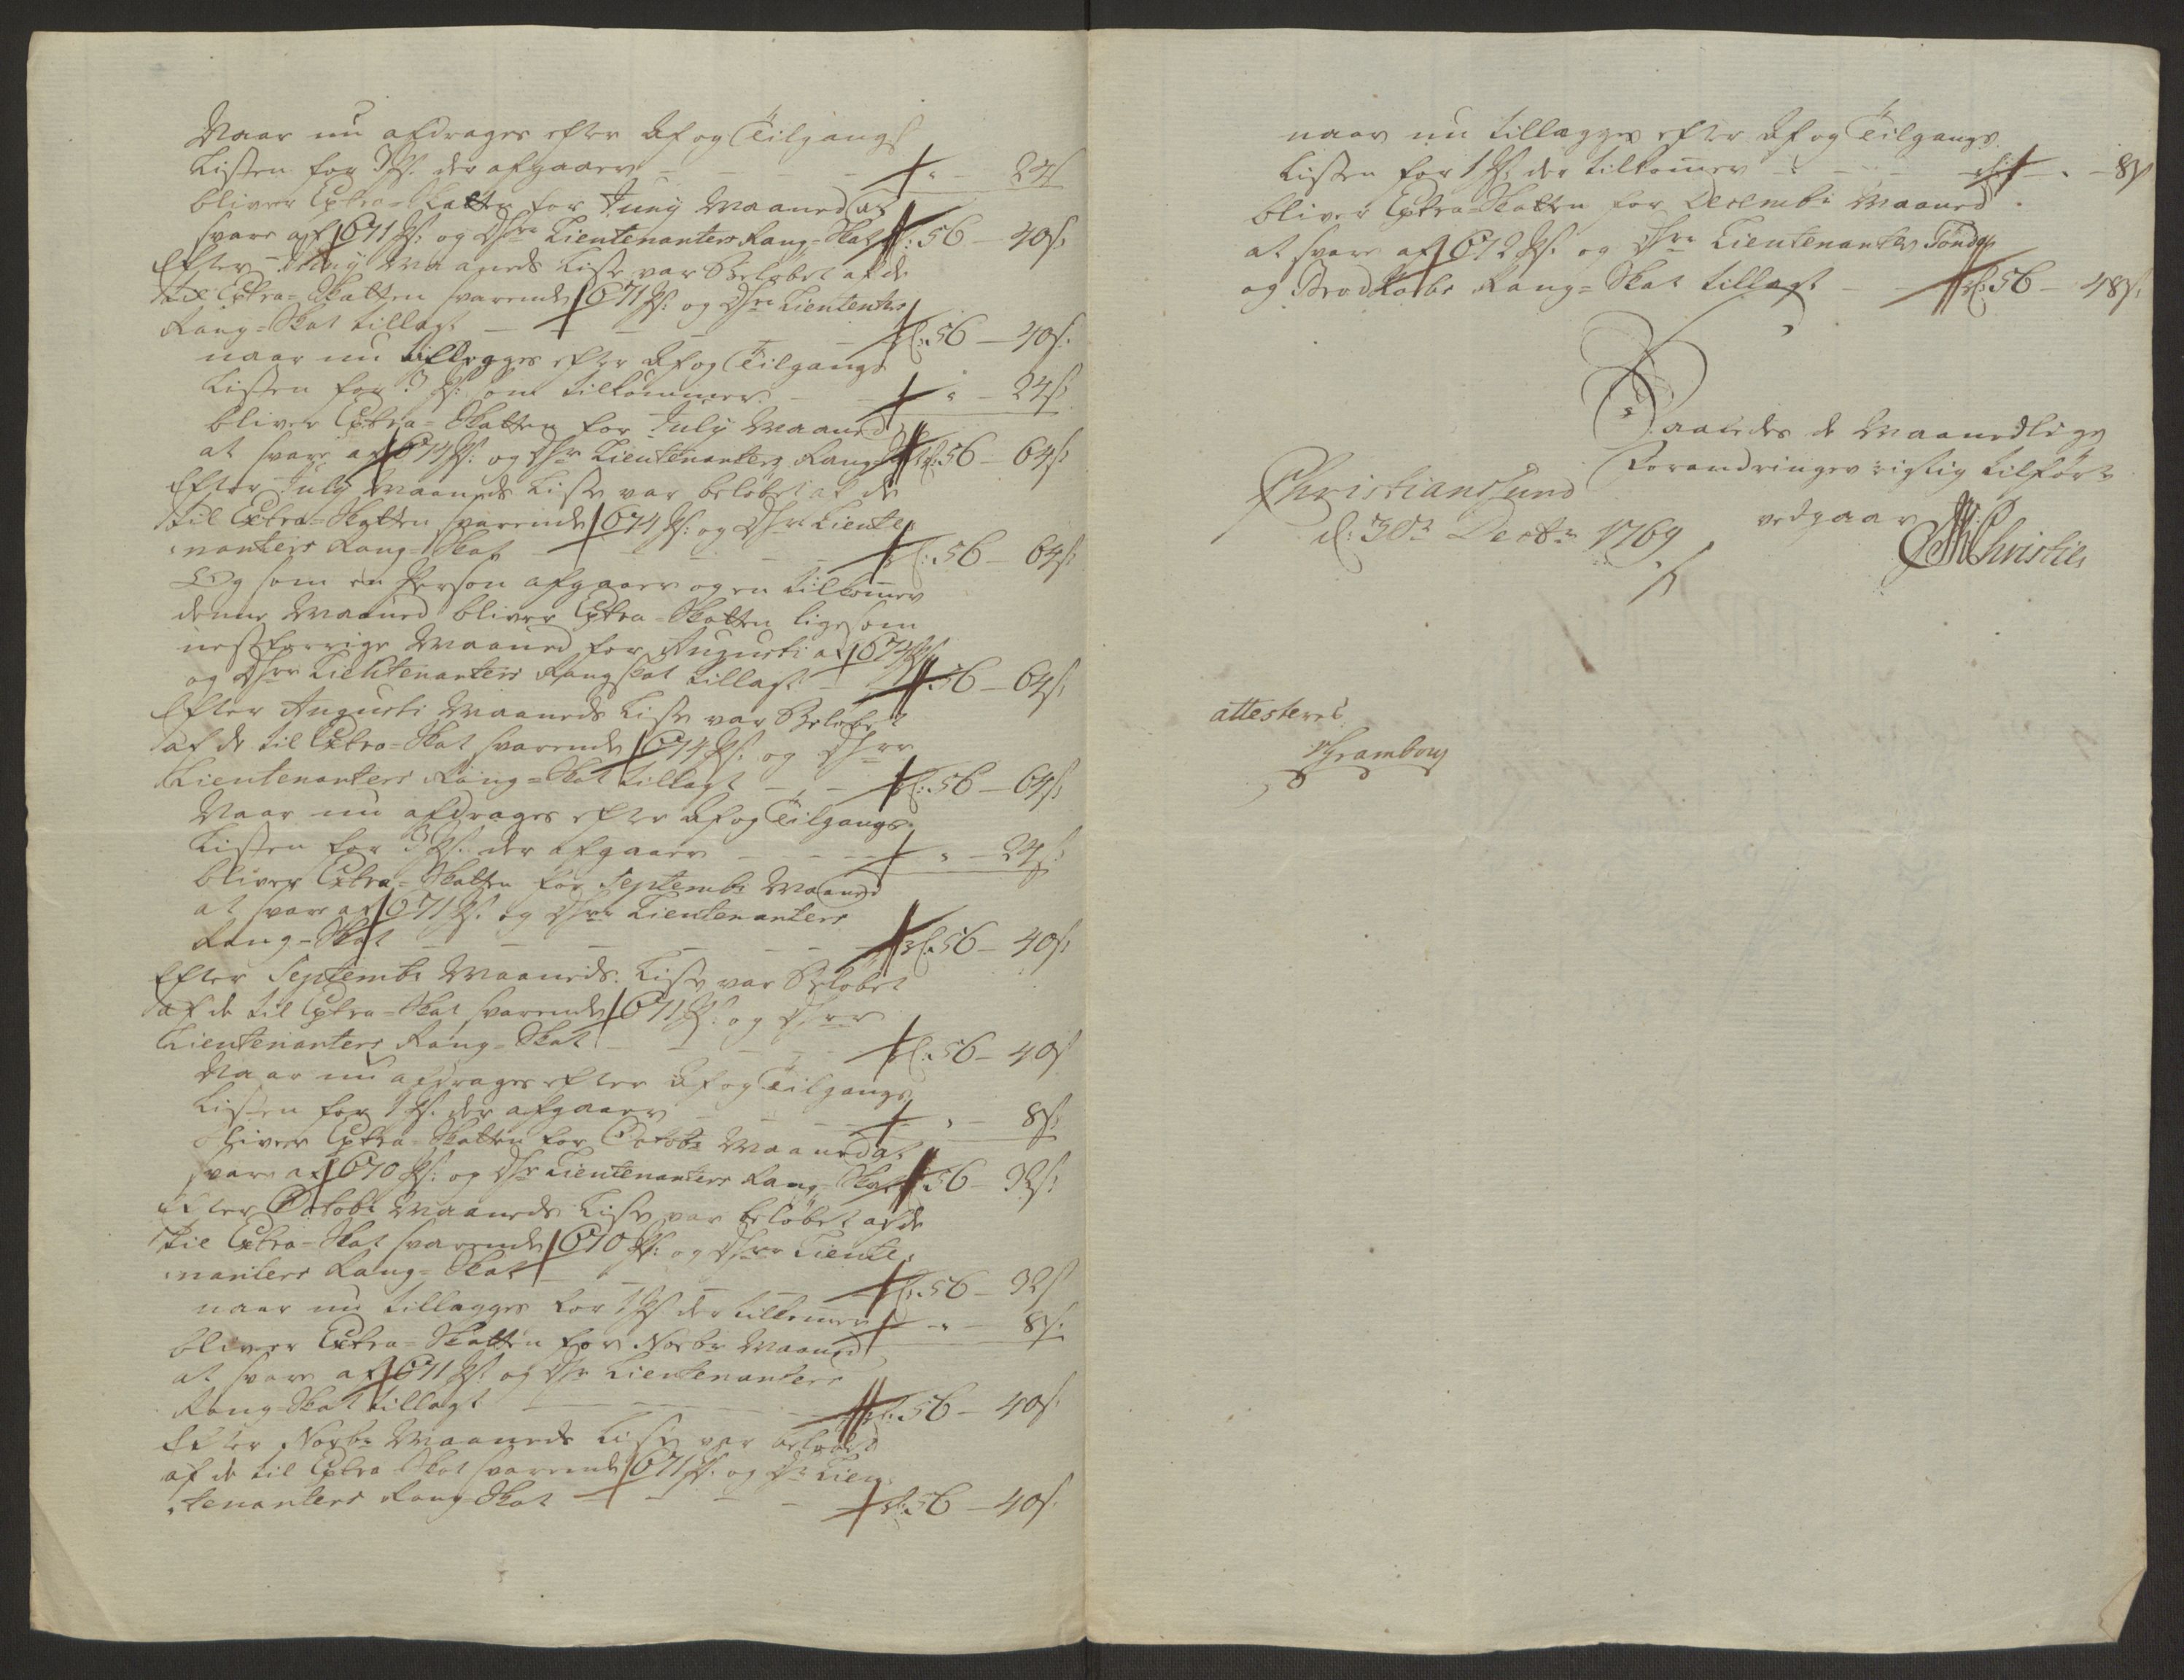 Naar nu afdrages efter Af og Tilgangs
Listen for 3 Ps. der afgaaer - - - " - 24 s
bliver Extra-Skatten for Juny Maaned at
svare af 671 Ps: og Lieutenanters Rang-Skat 56 - 40 s:
Efter Juny Maaneds Liste var Beløbet af de
til Extra-Skatten svarende 671 Ps: og Lieutenters
Rang-Skat tillagt - - - 56 - 40 s:
naar nu tillegges efter Af og Tilgangs
Listen for 3 Ps: som tilkommer - - " - 24 s:
bliver Extra-Skatten for July Maaned
at svare af 674 Ps: og Lieutenanters Rang-Skat 56 - 64 s:
Efter July Maaneds Liste var beløbet af de
til Extra-Skatten svarende 674 Ps: og Lieute-
nanters Rang-Skat - - - 56 - 64 s:
Og som en Person afgaaer og en tilkommer
denne Maaned bliver Extra-Skatten ligesom
nestforrige Maaned for Augusti af 674 Ps:
og Lieutenanters Rangskat tillagt - 56 - 64 s:
Efter Augusti Maaneds Liste var Beløbet
af de til Extra-Skat svarende 674 Ps. og
Lieutenanters Rang-Skat tillagt - - 56 - 64 s:
Naar nu afdrages efter Af og Tilgangs
Listen for 3 Ps: der afgaaer - - - " - 24 s:
bliver Extra-Skatten for Septembr Maaned
at svare af 671 Ps. og Lieutenanters
Rang-Skat - - - 56 - 40 s:
Efter Septembr Maaneds Liste var Beløbet
af de til Extra-Skat svarende 671 Ps: og
Lieutenanters Rang-Skat - - - 56 - 40 s
Naar nu afdrages efter Af og Tilgangs
Listen for 1 Ps. der afgaaer - - " - 8 s:
bliver Extra-Skatten for Octobr Maaned at
svare af 670 Ps: og Lieutenanters Rang-Skat 56 - 32 s:
Efter Octobr Maaneds Liste var beløbet af de
til Extra-Skat svarende 670 Ps: og Lieute-
nanters Rang-Skat - - - 56 - 32 s
naar nu tillægges for 1 Ps der tilkommer - " - 8 s:
bliver Extra-Skatten for Novbr Maaned
at svare af 671 Ps: og Lieutenanters
Rang-Skat tillagt - - - 56 - 40 s.
Efter Novbr Maaneds Liste var beløbet
af de til Extra Skat svarende 671 Ps. og Lieu-
tenanters Rang-Skat - - - 56 - 40 s.
naar nu tillægges efter Af og Tilgangs
Listen for 1 Ps: der tilkommer - - - " - 8 s
bliver Extra-Skatten for Decembr Maaned
at svare af 672 Ps. og Lieutenanter
og Brodkorbs Rang-Skat tillagt - - 56 - 48 s:
Saaledes de Maanedlige
Forandringer rigtig tilført
vedgaaer
Christiansund
d: 30te Decbr 1769
Christie
attesteres